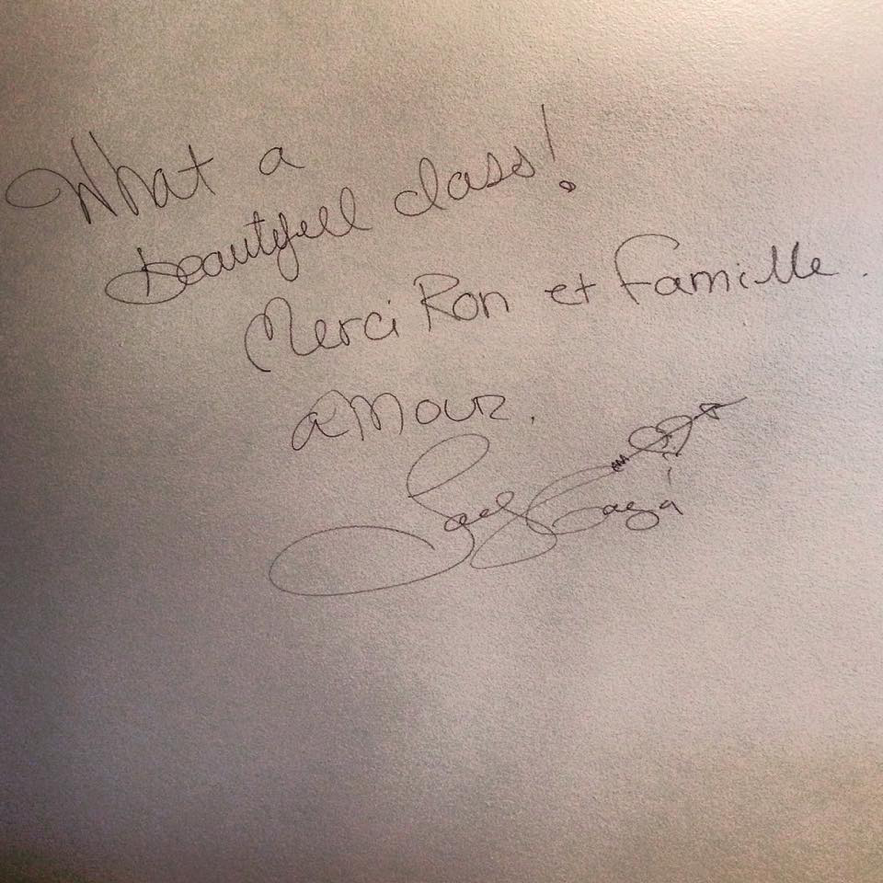 What a
beautifull class!
Merci Ron et famille.
aMour.